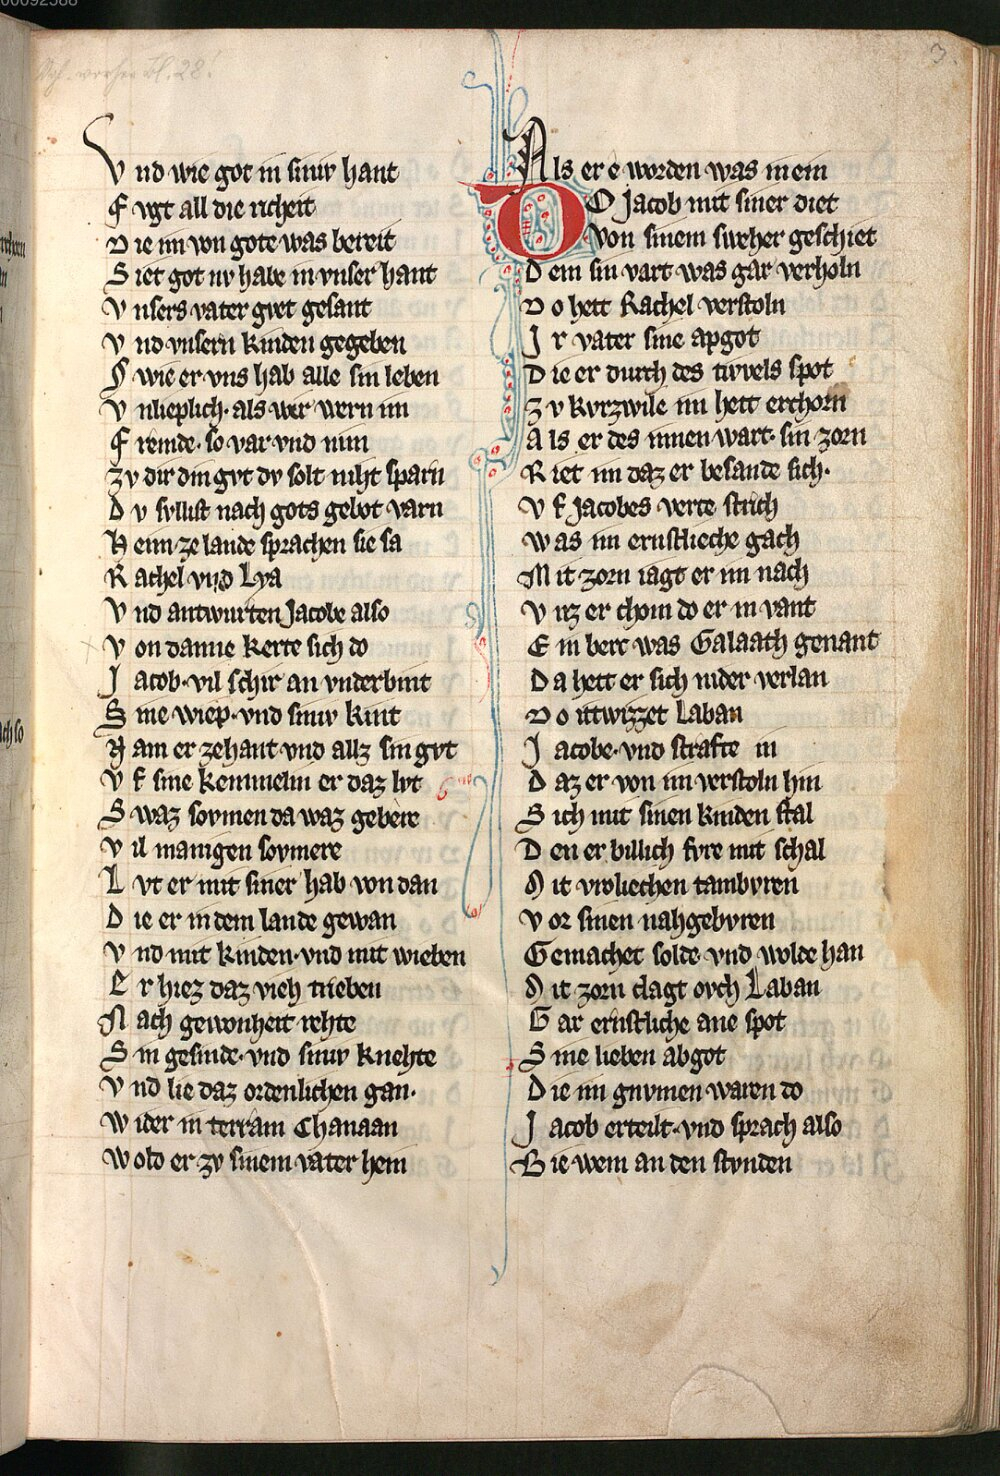 00092588
Vgl. vorher Bl. 28!
3.
V nd wie got in sinir hant
F vgt all die richeit
D ie im von gote was bereit
S iet got nv habe in vnser hant
V nsers vater gvet gesant
V nd vnsern kinden gegeben
S wie er vns hab alle sin leben
V nlieplich· als wir wern im
F remde· so var vnd nim
Zv dir din gvt dv solt niht sparn
D v svllst nach gots gebot varn
H eim· ze lande sprachen sie sa
R achel vnd Lya
V nd antwurten Jacobe also
V on danne kerte sich do
J acob· vil schir an vnderbint
S ine wiep· vnd siniv kint
N am er zehant vnd allz sin gvt
V f sine kemmelin er daz lvt
S waz sovmen da waz gebere
V il manigen sovmere
L vt er mit siner hab von dan
D ie er in dem lande gewan
V nd mit kinden· vnd mit wieben
E r hiez daz vieh trieben
N ach gewonheit rehte
S in gesinde· vnd siniv knehte
V nd lie daz ordenlichen gan·
W ider in terram Chanaan
W old er zv sinem vater hein
A ls er e worden was in ein
D O Jacob mit siner diet
Von sinem sweher geschiet
D em sin vart was gar verholn
D o hett Rachel verstoln
J r vater sine apgot
D ie er durch des tivvels spot
Z v kvrzwile im hett erchorn
A ls er des innen wart· sin zorn
R iet im daz er besande sich·
V f Jacobes verte strich
W as im ernstlieche gach
M it zorn iagt er im nach
V ntz er chom do er in vant
E in berc was Galaath genant
D a hett er sich nider verlan
D o itwizzet Laban
J acobe· vnd strafte in
D az er von im verstoln hin
S ich mit sinen kinden stal
D en er billich fvre mit schal
M it vroliechen tambvren
V or sinen nahgebvren
Gemachet solde· vnd wolde han
M it zorn clagt ovch Laban
G ar ernstliche ane spot
S ine lieben abgot
D ie im gnvmen waren do
J acob erteilt· vnd sprach also
B ie wem an den stvnden